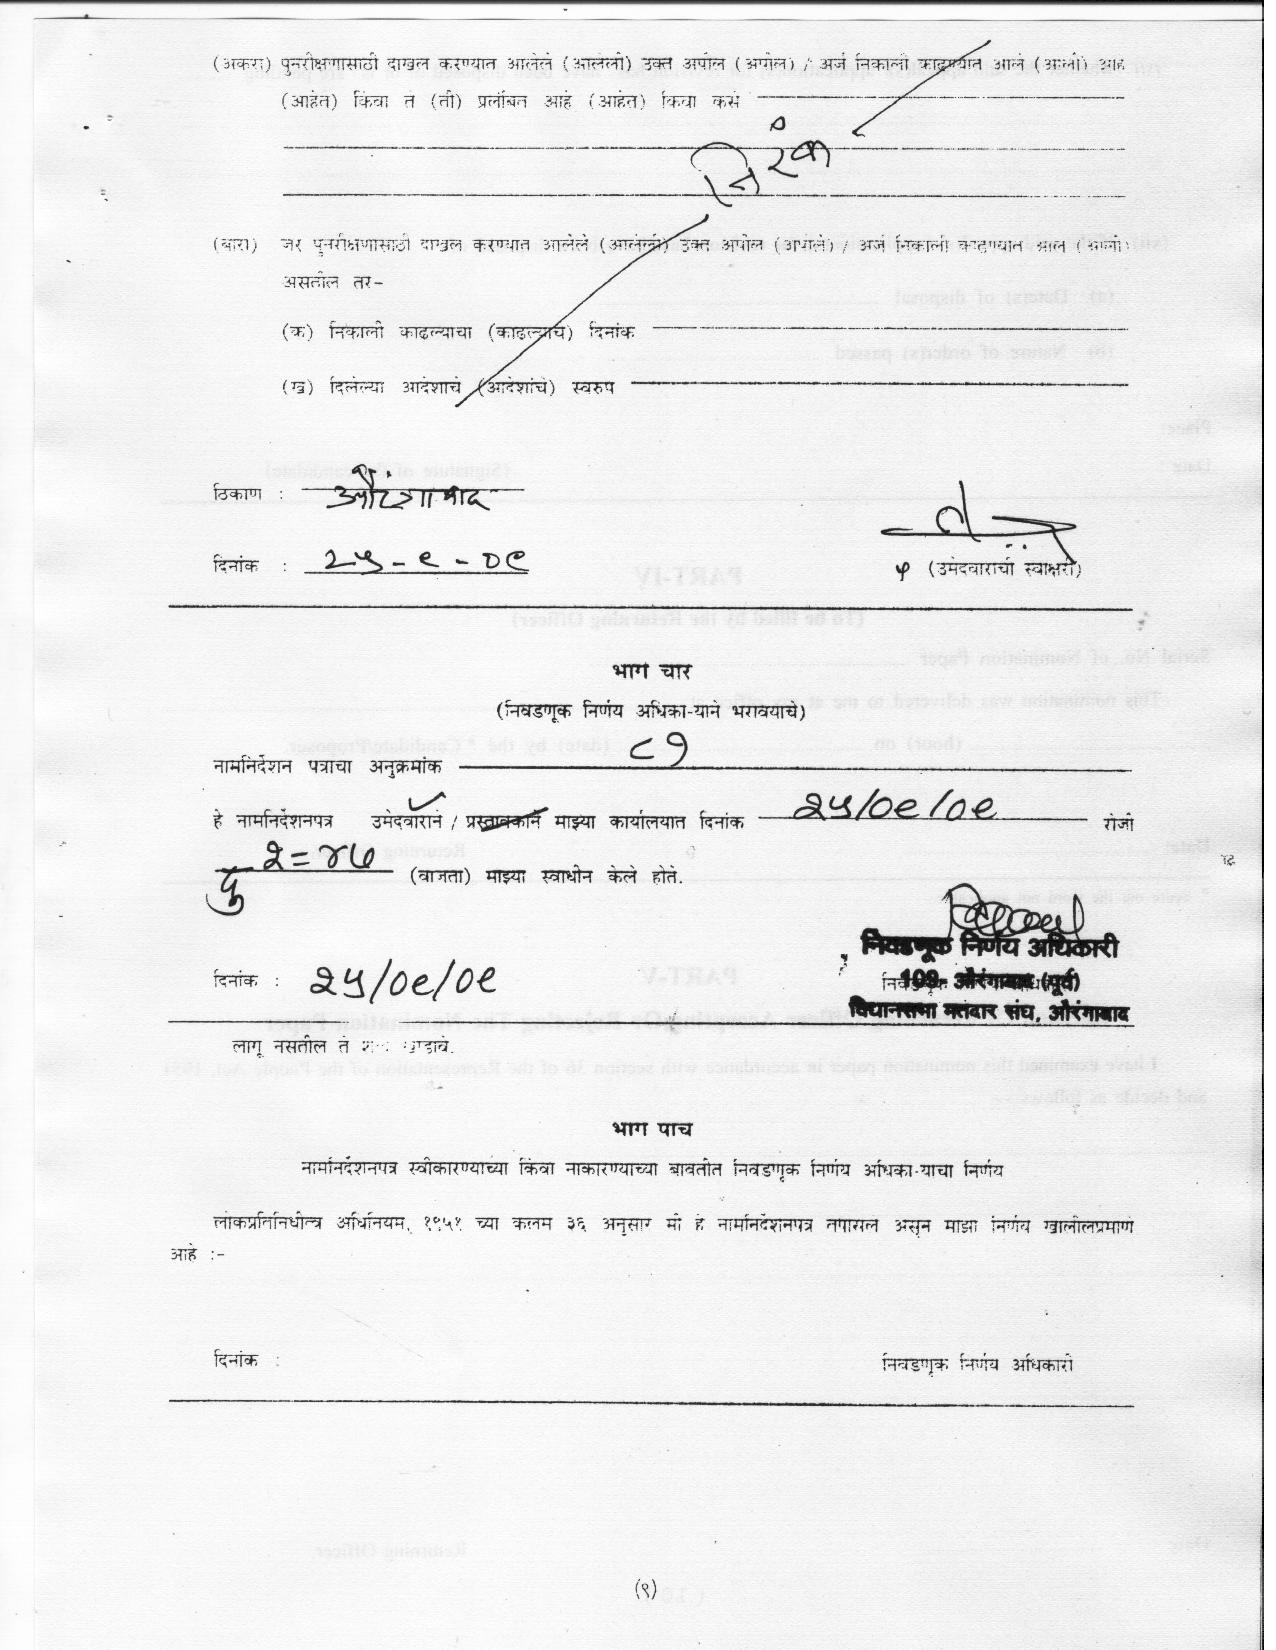 (अकरा) पुनरीक्षणासाठी दाखल करण्यात आलेले (आलेली) उक्त अपील (अपील) / अर्ज निकाली काढण्यात आले (आली) आहे
(आहेत) किंवा ते (ती) प्रलंबित आहे (आहेत) किंवा कसे
निरंक
(बारा) जर पुनरीक्षणासाठी दाखल करण्यात आलेले (आलेली) उक्त अपील (अपील) / अर्ज निकाली काढण्यात आले (आली)
असतील तर-
(क) निकाली काढल्याचा (काढल्याचे) दिनांक
(ख) दिलेल्या आदेशाचे (आदेशांचे) स्वरुप
ठिकाण : औरंगाबाद
दिनांक : २५-९-०९
(उमेदवाराची स्वाक्षरी)
भाग चार
(निवडणूक निर्णय अधिका-याने भरावयाचे)
नामनिर्देशन पत्राचा अनुक्रमांक ८१
हे नामनिर्देशनपत्र उमेदवाराने / प्रस्तावकाने माझ्या कार्यालयात दिनांक २५/०९/०९ रोजी
दु २=४७ (वाजता) माझ्या स्वाधीन केले होते.
निवडणूक निर्णय अधिकारी
दिनांक : २५/०९/०९
109- औरंगाबाद (पूर्व)
विधानसभा मतदार संघ, औरंगाबाद
लागू नसतील ते खोडावे.
भाग पाच
नामनिर्देशनपत्र स्वीकारण्याच्या किंवा नाकारण्याच्या बाबतीत निवडणूक निर्णय अधिका-याचा निर्णय
लोकप्रतिनिधीत्व अधिनियम, १९५१ च्या कलम ३६ अनुसार मी हे नामनिर्देशनपत्र तपासले असून माझा निर्णय खालीलप्रमाणे
आहे :-
दिनांक :
निवडणूक निर्णय अधिकारी
(९)